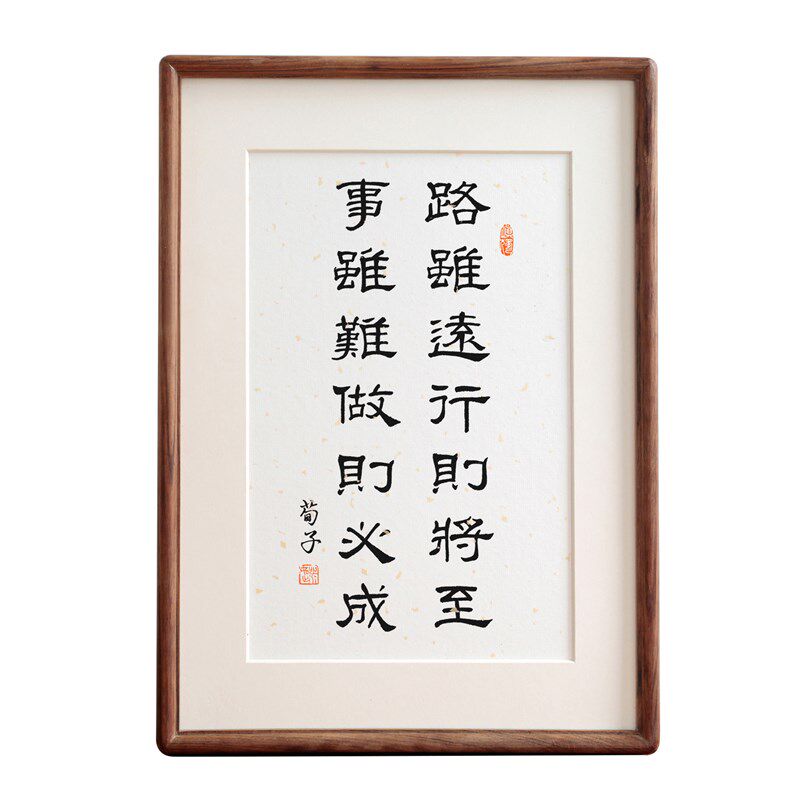 路雖遠行則將至
事雖難做則必成
荀子